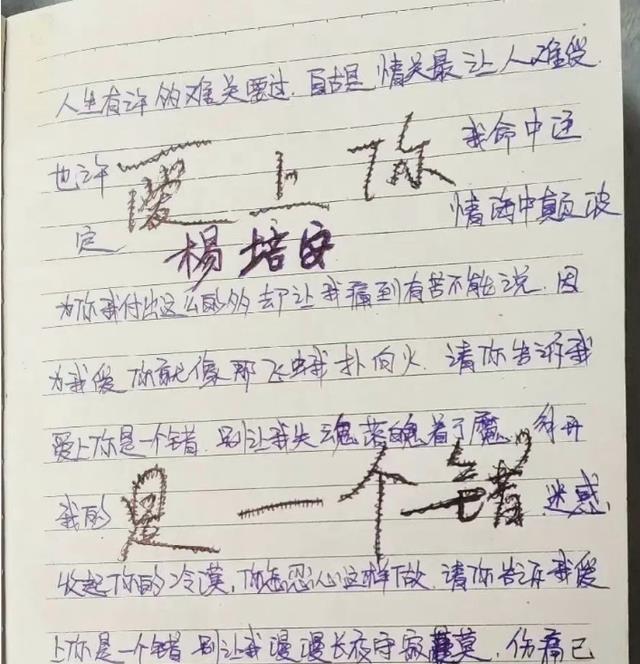 人生有许多的难关要过.自古是 情关最让人难受.
也许 爱上你 我命中还
定 杨培安 情海中颠波
为你我付出这么的多 却让我痛到有苦不能说.因
为我爱你就像那飞蛾扑向火.请你告诉我
爱上你是一个错.别让我失魂落魄着了魔.解开
我的 是一个错 迷惑.
收起你的冷漠,你怎忍心这样做.请你告诉我爱
上你是一个错 别让我漫漫长夜守寂寞.伤痛已